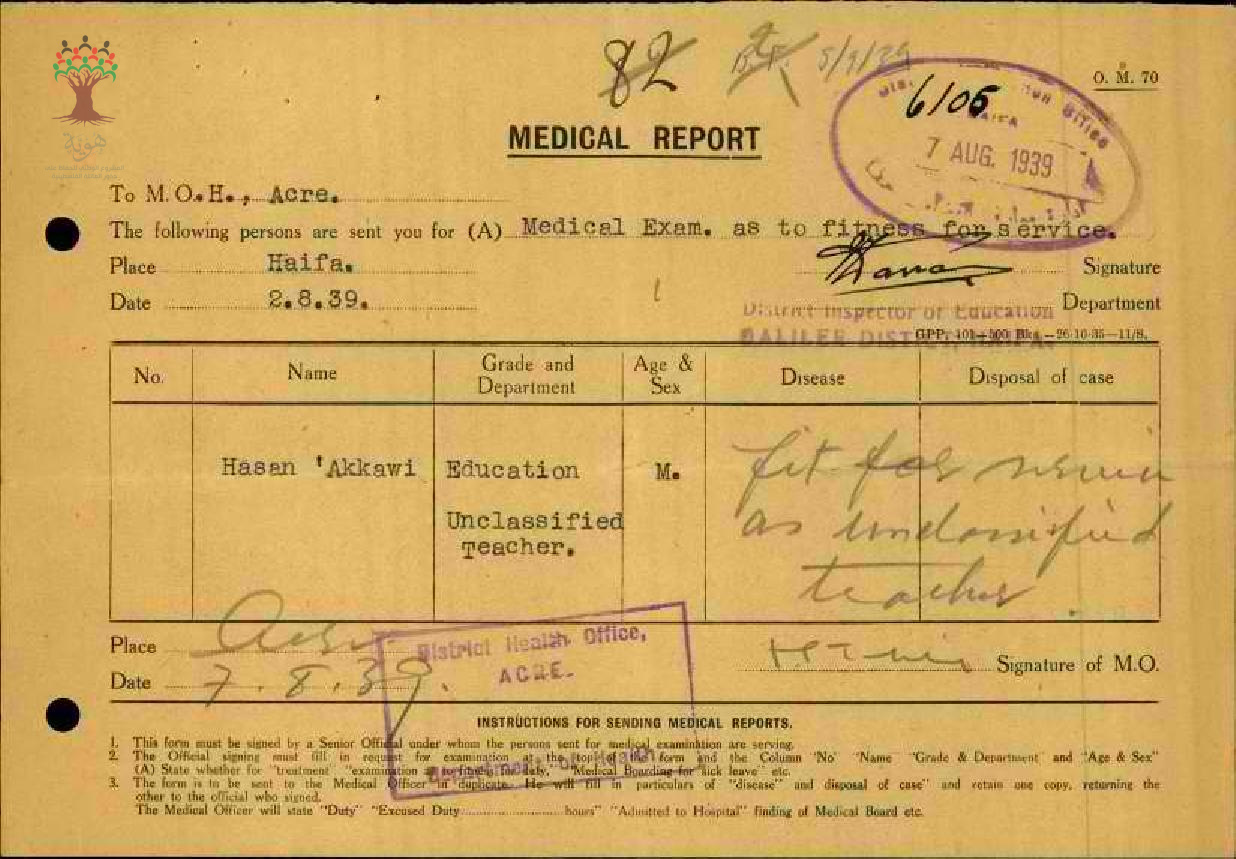 82 5/9/39
O. M. 70
6105
HAIFA
7 AUG. 1939
هوية
MEDICAL REPORT
To M.O.H., Acre.
The following persons are sent you for (A) Medical Exam. as to fitness for service.
Place Haifa. Signature
Date 2.8.39. Department
District Inspector of Education
GALILEE DISTRICT, HAIFA.
GPP. 101—500 Bks.—26-10-35—11/8.
No. Name Grade and Department Age & Sex Disease Disposal of case
Hasan 'Akkawi Education M.
Unclassified
Teacher.
fit for service
as unclassified
teacher.
Place Acre
Signature of M.O.
Date 7.8.39.
District Health Office,
ACRE.
Department of Health.
INSTRUCTIONS FOR SENDING MEDICAL REPORTS.
1. This form must be signed by a Senior Official under whom the persons sent for medical examination are serving.
2. The Official signing must fill in request for examination at the top of the form and the Column "No" "Name "Grade & Department" and "Age & Sex"
(A) State whether for "treatment" "examination as to fitness for duty, "Medical Boarding for sick leave" etc.
3. The form is to be sent to the Medical Officer in duplicate. He will fill in particulars of "disease" and disposal of case" and retain one copy, returning the
other to the official who signed.
The Medical Officer will state "Duty" "Excused Duty hours" "Admitted to Hospital" finding of Medical Board etc.